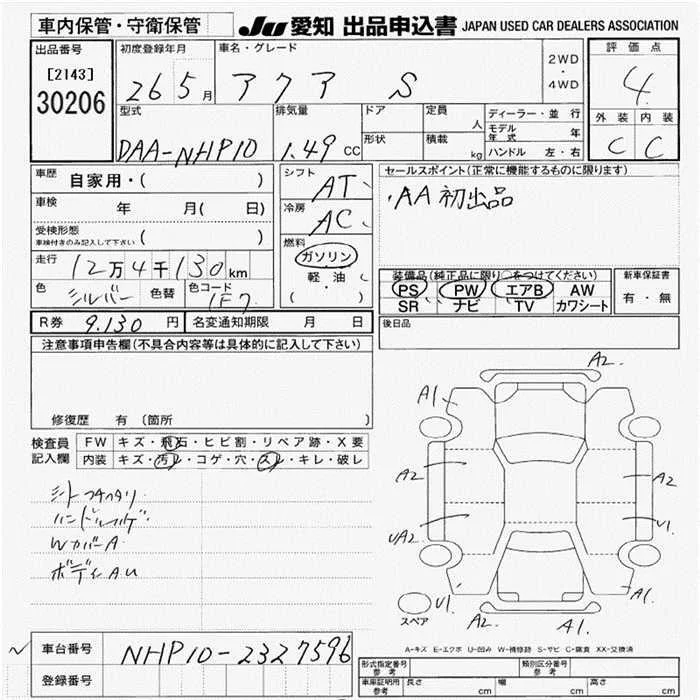 車内保管・守衛保管 JU 愛知 出品申込書 JAPAN USED CAR DEALERS ASSOCIATION
出品番号 初度登録年月 車名・グレード 2WD・4WD 評価点
[2143] 26 5月 アクア S 4
30206
型式 排気量 ドア 定員 人 ディーラー・並行 外装 内装
DAA-NHP10 1.49 CC 形状 積載 kg モデル年式 年 C C
ハンドル 左・右
車歴 自家用・( ) シフト AT セールスポイント(正常に機能するものに限ります)
車検 年 月( 日) 冷房 AC ・AA初出品
受検形態 ( )
車検付きのみ記入して下さい
燃料 ガソリン 軽・油 ( )
走行 12万4千130km
装備品(純正品に限り○をつけてください) 新車保証書
色 シルバー 色替 色コード 1F7
PS PW エアB AW 有・無
SR ナビ TV カワシート
R券 9.130円 名変通知期限 月 日 後日品
注意事項申告欄(不具合内容等は具体的に記入して下さい)
修復歴 有 (箇所
検査員 FW キズ・飛石・ヒビ割・リペア跡・X要
記入欄 内装 キズ・汚レ・コゲ・穴・スレ・キレ・破レ
シートフカクタリ
ハンドルハゲ
WカバーA
ボディAU
A2.
A1
A2
A2
UA2
U1
U1.
A1.
A2.
A1.
スペア
A-キズ E-エクボ U-凹み W-補修跡 S-サビ C-腐食 XX-交換済
車台番号 NHP10-2327596
登録番号
形式指定番号 参考 類別区分番号 参考
車庫証明用 参考 長さ cm 幅 cm 高さ cm